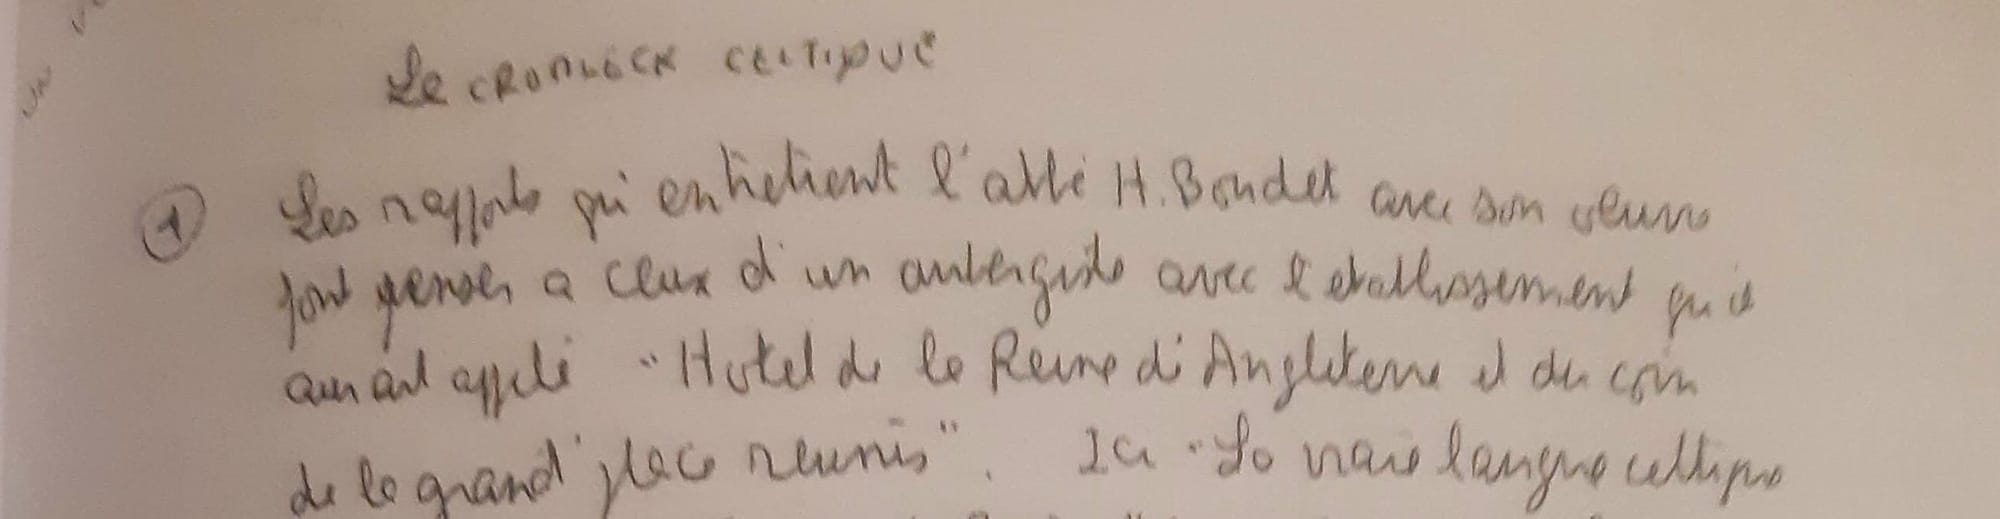 Le CROMLECK CELTIQUE
① Les rapports qui entretient l'abbé H. Boudet avec son œuvre
font penser a ceux d'un aubergiste avec l'etablissement qu'il
aurait appelé "Hotel de la Reine d'Angleterre et du coin
de la grand'place reunis". Ici "La vraie langue celtique